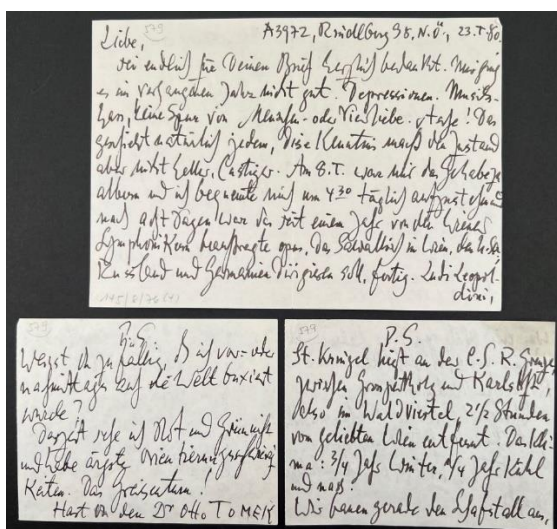 579
A3972, Brüdlberg 38, N.Ö., 23.I.80
Liebe,
sei endlich für Deinen Brief herzlich bedankt. Mir ging
es im vergangenen Jahr nicht gut. Depressionen. Musik-
hass, keine Spur von Menschen- oder Viehliebe. Tafe! Das
geschieht natürlich jedem, diese Kenntnis macht den Zustand
aber nicht heller, lustiger. Am 8.I. war mir das Gehabe zu
albern und ich bequemte mich um 4 30 täglich aufzustehen
nach acht Tagen war das seit einem Jahr von den Wiener
Symphonikern beauftragte opus, das in Wien, den
Russland und Germanien dirigieren soll, fertig. Leopol-
dini,
145/2/76 (4)
579
P.S.
Weisst Du zufällig, ob ich vor- oder
nachmittags auf die Welt buxiert
wurde?
Derzeit esse ich Obst und
und habe ärgste Orientierungsschwierig-
keiten. Das Greisentum!
Hast von den Dr Otto TOMEK
579
P.S.
St. liegt an der C.S.R. Grenze,
zwischen und Karlstift
also im Waldviertel, 2 1/2 Stunden
vom geliebten Wien entfernt. Das Kli-
ma: 3/4 Jahr Winter, 1/4 Jahr kühl
und naß.
Wir bauen gerade den Schafstall aus